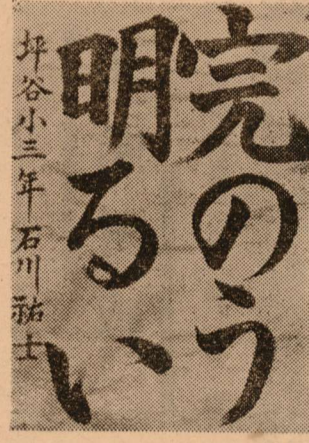 完のう
明るい
坪谷小三年 石川祐士